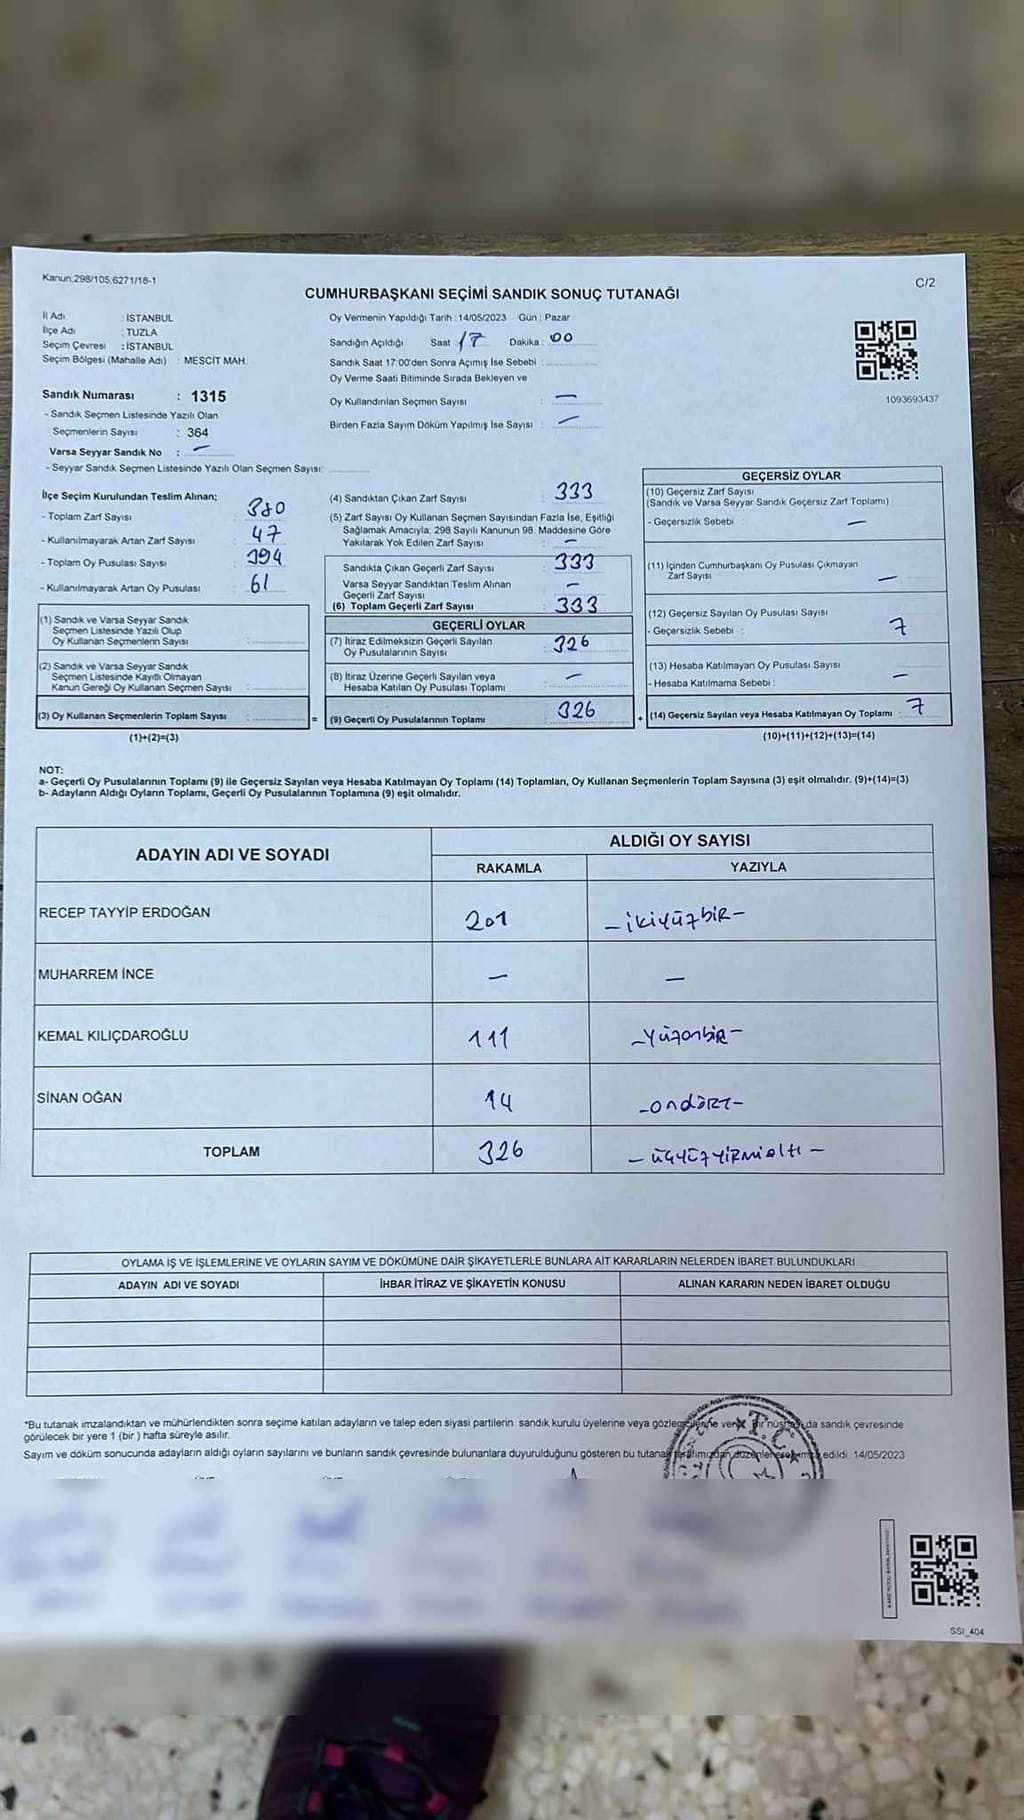 Kanun:298/105,6271/18-1
C/2
CUMHURBAŞKANI SEÇİMİ SANDIK SONUÇ TUTANAĞI
İl Adı : İSTANBUL
İlçe Adı : TUZLA
Seçim Çevresi : İSTANBUL
Seçim Bölgesi (Mahalle Adı) : MESCİT MAH.
Sandık Numarası : 1315
- Sandık Seçmen Listesinde Yazılı Olan
Seçmenlerin Sayısı : 364
Varsa Seyyar Sandık No : —
- Seyyar Sandık Seçmen Listesinde Yazılı Olan Seçmen Sayısı:
Oy Vermenin Yapıldığı Tarih : 14/05/2023 Gün : Pazar
Sandığın Açıldığı Saat 17 Dakika : 00
Sandık Saat 17:00'den Sonra Açımış İse Sebebi :
Oy Verme Saati Bitiminde Sırada Bekleyen ve
Oy Kullandırılan Seçmen Sayısı : —
Birden Fazla Sayım Döküm Yapılmış İse Sayısı : —
1093693437
İlçe Seçim Kurulundan Teslim Alınan;
- Toplam Zarf Sayısı : 380
- Kullanılmayarak Artan Zarf Sayısı : 47
- Toplam Oy Pusulası Sayısı : 394
- Kullanılmayarak Artan Oy Pusulası : 61
(1) Sandık ve Varsa Seyyar Sandık
Seçmen Listesinde Yazılı Olup
Oy Kullanan Seçmenlerin Sayısı :
(2) Sandık ve Varsa Seyyar Sandık
Seçmen Listesinde Kayıtlı Olmayan
Kanun Gereği Oy Kullanan Seçmen Sayısı :
(3) Oy Kullanan Seçmenlerin Toplam Sayısı :
(1)+(2)=(3)
(4) Sandıktan Çıkan Zarf Sayısı : 333
(5) Zarf Sayısı Oy Kullanan Seçmen Sayısından Fazla İse, Eşitliği
Sağlamak Amacıyla; 298 Sayılı Kanunun 98. Maddesine Göre
Yakılarak Yok Edilen Zarf Sayısı : —
Sandıkta Çıkan Geçerli Zarf Sayısı : 333
Varsa Seyyar Sandıktan Teslim Alınan
Geçerli Zarf Sayısı : —
(6) Toplam Geçerli Zarf Sayısı : 333
GEÇERLİ OYLAR
(7) İtiraz Edilmeksizin Geçerli Sayılan
Oy Pusulalarının Sayısı : 326
(8) İtiraz Üzerine Geçerli Sayılan veya
Hesaba Katılan Oy Pusulası Toplamı : —
= (9) Geçerli Oy Pusulalarının Toplamı : 326
GEÇERSİZ OYLAR
(10) Geçersiz Zarf Sayısı
(Sandık ve Varsa Seyyar Sandık Geçersiz Zarf Toplamı)
- Geçersizlik Sebebi : —
(11) İçinden Cumhurbaşkanı Oy Pusulası Çıkmayan
Zarf Sayısı : —
(12) Geçersiz Sayılan Oy Pusulası Sayısı
- Geçersizlik Sebebi : 7
(13) Hesaba Katılmayan Oy Pusulası Sayısı
- Hesaba Katılmama Sebebi : —
+ (14) Geçersiz Sayılan veya Hesaba Katılmayan Oy Toplamı : 7
(10)+(11)+(12)+(13)=(14)
NOT:
a- Geçerli Oy Pusulalarının Toplamı (9) ile Geçersiz Sayılan veya Hesaba Katılmayan Oy Toplamı (14) Toplamları, Oy Kullanan Seçmenlerin Toplam Sayısına (3) eşit olmalıdır. (9)+(14)=(3)
b- Adayların Aldığı Oyların Toplamı, Geçerli Oy Pusulalarının Toplamına (9) eşit olmalıdır.
ADAYIN ADI VE SOYADI
ALDIĞI OY SAYISI
RAKAMLA YAZIYLA
RECEP TAYYİP ERDOĞAN 201 -ikiyüzbir-
MUHARREM İNCE — —
KEMAL KILIÇDAROĞLU 111 -yüzonbir-
SİNAN OĞAN 14 -ondört-
TOPLAM 326 -üçyüzyirmialtı-
OYLAMA İŞ VE İŞLEMLERİNE VE OYLARIN SAYIM VE DÖKÜMÜNE DAİR ŞİKAYETLERLE BUNLARA AİT KARARLARIN NELERDEN İBARET BULUNDUKLARI
ADAYIN ADI VE SOYADI İHBAR İTİRAZ VE ŞİKAYETİN KONUSU ALINAN KARARIN NEDEN İBARET OLDUĞU
*Bu tutanak imzalandıktan ve mühürlendikten sonra seçime katılan adayların ve talep eden siyasi partilerin sandık kurulu üyelerine veya verilir bir da sandık çevresinde
görülecek bir yere 1 (bir ) hafta süreyle asılır.
Sayım ve döküm sonucunda adayların aldığı oyların sayılarını ve bunların sandık çevresinde bulunanlara duyurulduğunu gösteren bu tutanak edildi. 14/05/2023
T.C.
SSI_404